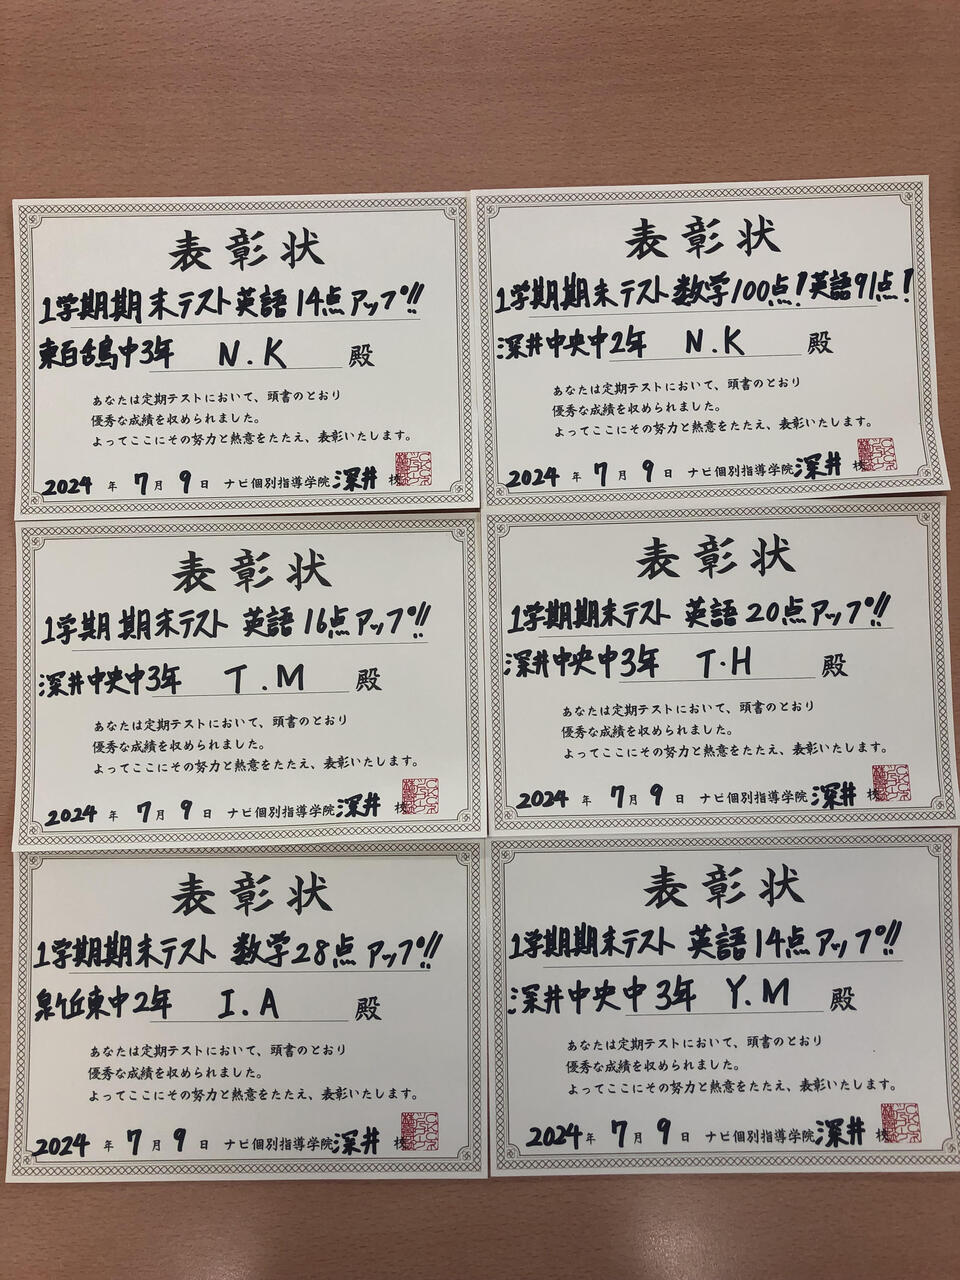 表彰状
1学期期末テスト英語14点アップ!!
東百舌鳥中3年 N.K 殿
あなたは定期テストにおいて、頭書のとおり
優秀な成績を収められました。
よってここにその努力と熱意をたたえ、表彰いたします。
2024年7月9日 ナビ個別指導学院深井校
表彰状
1学期期末テスト数学100点!英語91点!
深井中央中2年 N.K 殿
あなたは定期テストにおいて、頭書のとおり
優秀な成績を収められました。
よってここにその努力と熱意をたたえ、表彰いたします。
2024年7月9日 ナビ個別指導学院深井校
表彰状
1学期期末テスト 英語16点アップ!!
深井中央中3年 T.M 殿
あなたは定期テストにおいて、頭書のとおり
優秀な成績を収められました。
よってここにその努力と熱意をたたえ、表彰いたします。
2024年7月9日 ナビ個別指導学院深井校
表彰状
1学期期末テスト 英語20点アップ!!
深井中央中3年 T.H 殿
あなたは定期テストにおいて、頭書のとおり
優秀な成績を収められました。
よってここにその努力と熱意をたたえ、表彰いたします。
2024年7月9日 ナビ個別指導学院深井校
表彰状
1学期期末テスト 数学28点アップ!!
泉ヶ丘東中2年 I.A 殿
あなたは定期テストにおいて、頭書のとおり
優秀な成績を収められました。
よってここにその努力と熱意をたたえ、表彰いたします。
2024年7月9日 ナビ個別指導学院深井校
表彰状
1学期期末テスト 英語14点アップ!!
深井中央中3年 Y.M 殿
あなたは定期テストにおいて、頭書のとおり
優秀な成績を収められました。
よってここにその努力と熱意をたたえ、表彰いたします。
2024年7月9日 ナビ個別指導学院深井校